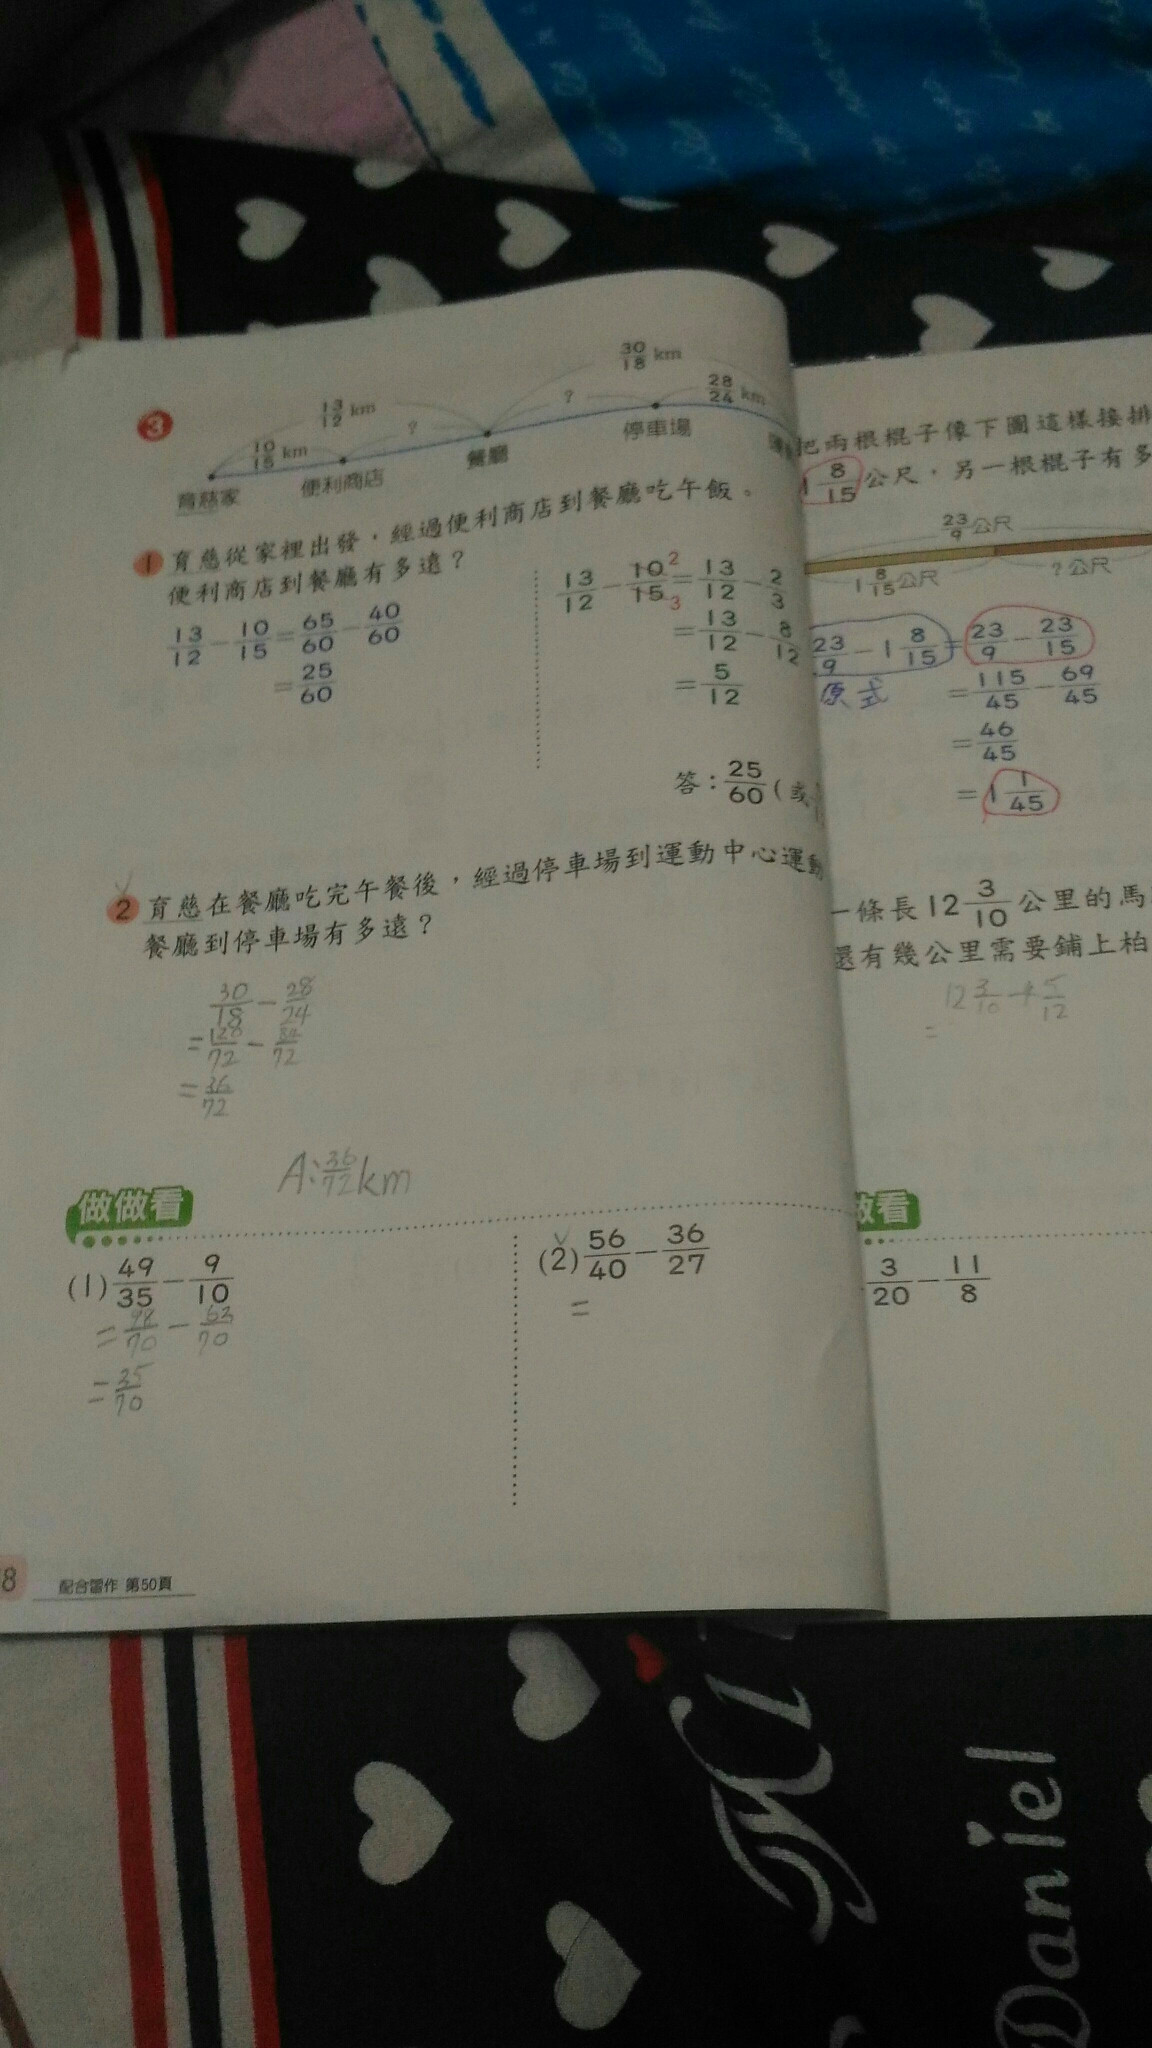 3
30/18 km
13/12 km
?
28/24 km
10/15 km
?
育慈家
便利商店
餐廳
停車場
1 育慈從家裡出發，經過便利商店到餐廳吃午飯。
便利商店到餐廳有多遠？
13/12 − 10/15 = 65/60 − 40/60
= 25/60
13/12 − 10/15 2 3 = 13/12 − 2/3
= 13/12 − 8/12
= 5/12
答：25/60 (或
2 育慈在餐廳吃完午餐後，經過停車場到運動中心運動
餐廳到停車場有多遠？
30/18 − 28/24
= 120/72 − 84/72
= 36/72
A: 36/72 km
做做看
(1) 49/35 − 9/10
= 98/70 − 63/70
= 35/70
(2) 56/40 − 36/27
=
8
配合習作 第50頁
把兩根棍子像下圖這樣接排
1 8/15 公尺，另一根棍子有多
23/9 公尺
1 8/15 公尺
? 公尺
23/9 − 1 8/15 = 23/9 − 23/15
原式
= 115/45 − 69/45
= 46/45
= 1 1/45
一條長 12 3/10 公里的馬
還有幾公里需要鋪上柏
=
做看
3/20 − 11/8
Daniel